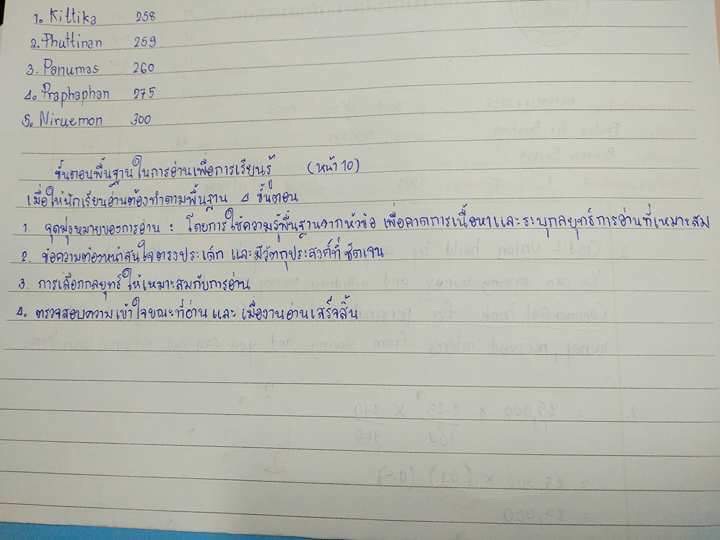 1. Kittika 258
2. Phuttinan 259
3. Panumas 260
4. Praphaphan 275
5. Niruemon 300
ขั้นตอนพื้นฐานในการอ่านเพื่อการเรียนรู้ (หน้า 10)
เมื่อให้นักเรียนอ่านต้องทำตามพื้นฐาน 4 ขั้นตอน
1. จุดมุ่งหมายของการอ่าน : โดยการใช้ความรู้พื้นฐานจากหัวข้อ เพื่อคาดการเนื้อหาและระบุกลยุทธ์การอ่านที่เหมาะสม
2. ข้อความต้องหน้าสนใจตรงประเด็ก และมีวัตถุประสงค์ที่ชัดเจน
3. การเลือกกลยุทธ์ให้เหมาะสมกับการอ่าน
4. ตรวจสอบความเข้าใจขณะที่อ่าน และ เมื่องานอ่านเสร็จสิ้น